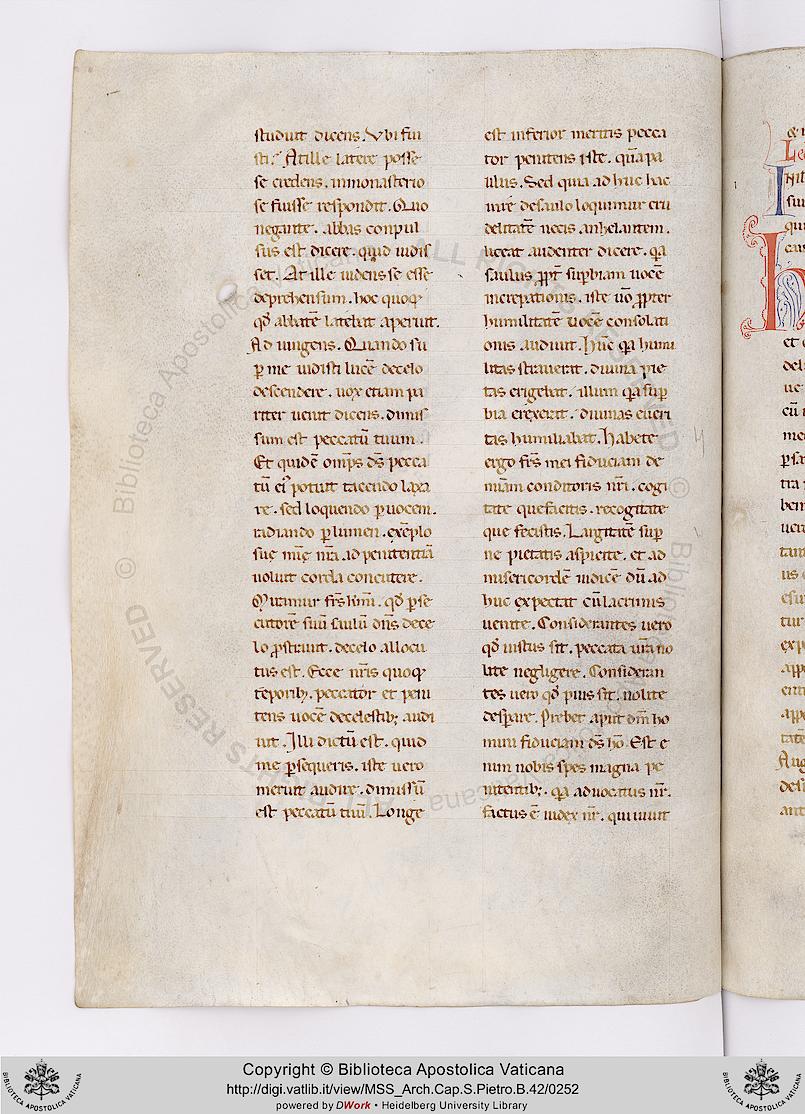 studuit dicens. Vbi fui
sti? At ille latere posse
se credens. in monasterio
se fuisse respondit. Quo
negante. abbas conpul
sus est dicere. quid uidis
set. At ille uidens se esse
deprehensum. hoc quoq;
qđ abbatē latebat aperuit.
Adiungens. Quando su
ꝑ me uidisti lucē de celo
descendere. uox etiam pa
riter uenit dicens. dimis
sum est peccatū tuum.
Et quidē omp̄s ds̄ pecca
tū eiꝰ potuit tacendo laxa
re. sed loquendo ꝑ uocem.
radiando ꝑ lumen. exēplo
suę mīę nr̄a. ad penitentiā
uoluit corda concutere.
Miramur fr̄s km̄i. qđ ꝑse
cutorē suū saulū dn̄s de ce
lo ꝓstrauit. de celo allocu
tus est. Ecce nr̄is quoq;
tēporib;. peccator et peni
tens uocē de celestib; audi
uit. Illi dictū est. quid
me ꝑsequeris. iste uero
meruit audire. dimissū
est peccatū tuū. Longe
est inferior meritis pecca
tor penitens iste. quā pa
ulus. Sed quia ad huc hac
in re de saulo loquimur cru
delitatē necis anhelantem.
liceat audenter dicere. qa
saulus ꝓpt̄ suꝑbiam uocē
increpationis. iste uō ꝓpter
humilitatē uocē consolati
onis audiuit. Hūc qa humi
litas strauerat. diuina pie
tas erigebat. illum qa suꝑ
bia erexerat. diuinas eueri
tas humiliabat. Habete
ergo fr̄s mei fiduciam de
mīam conditoris nr̄i. cogi
tate que facitis. recogitate
que fecistis. Largitatē suꝑ
ne pietatis aspicite. et ad
misericordē iudicē dū ad
huc expectat cū lacrimis
uenite. Considerantes uero
qđ iustus sit. peccata ur̄a no
lite negligere. Consideran
tes uero qđ pius sit. nolite
desꝑare. Prebet aput dm̄ ho
mini fiduciam ds̄ hō. Est e
nim nobis spes magna pe
nitentib;. qa aduocatus nr̄.
factus ē iudex nr̄. qui uiuit
Copyright © Biblioteca Apostolica Vaticana
http://digi.vatlib.it/view/MSS_Arch.Cap.S.Pietro.B.42/0252
powered by DWork • Heidelberg University Library